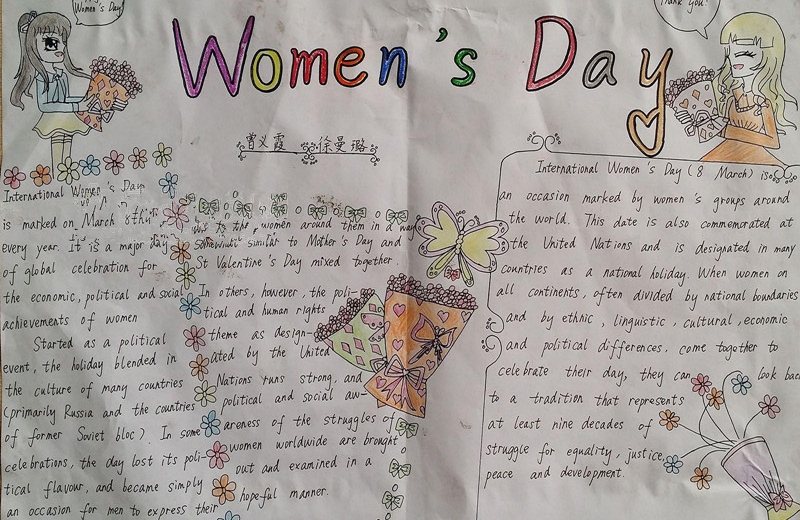 Women's Day
Women's Day
Thank you!
曾义霞 徐曼璐
International Women's Day
is marked on March 8th
every year. It is a major day
of global celebration for
the economic, political and social
achievements of women
Started as a political
event, the holiday blended in
the culture of many countries
(primarily Russia and the countries
of former Soviet bloc). In some
celebrations, the day lost its poli-
tical flavour, and became simply
an occasion for men to express their
to the women around them in a way
somewhat similar to Mother's Day and
St Valentine's Day mixed together.
In others, however, the poli-
tical and human rights
theme as design-
ated by the United
Nations runs strong, and
political and social aw-
areness of the struggles of
women worldwide are brought
out and examined in a
hopeful manner.
International Women's Day (8 March) is
an occasion marked by women's groups around
the world. This date is also commemorated at
the United Nations and is designated in many
countries as a national holiday. When women on
all continents, often divided by national boundaries
and by ethnic, linguistic, cultural, economic
and political differences, come together to
celebrate their day, they can look back
to a tradition that represents
at least nine decades of
struggle for equality, justice,
peace and development.